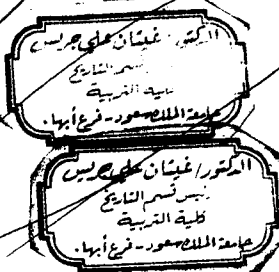 الدكتور/ غيثان علي جريس
قسم التاريخ
كلية التربية
جامعة الملك سعود - فرع أبها.
الدكتور/ غيثان علي جريس
رئيس قسم التاريخ
كلية التربية
جامعة الملك سعود - فرع أبها.